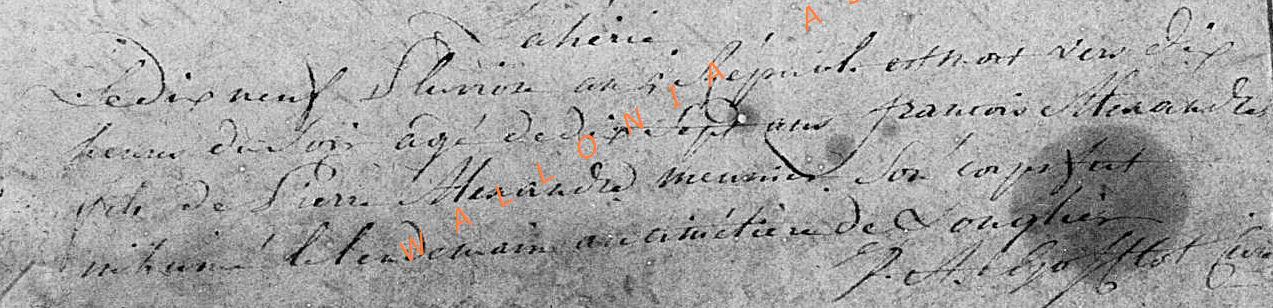 Laherie
Le dix neuf Pluviôse an 5 Républ. est mort vers dix
heures du soir agé de dix Sept ans francois Alexandre
fils de Pierre Alexandre meunier. Son corps fut
inhumé le lendemain au cimétière de Longlier
Curé
WALLONIA